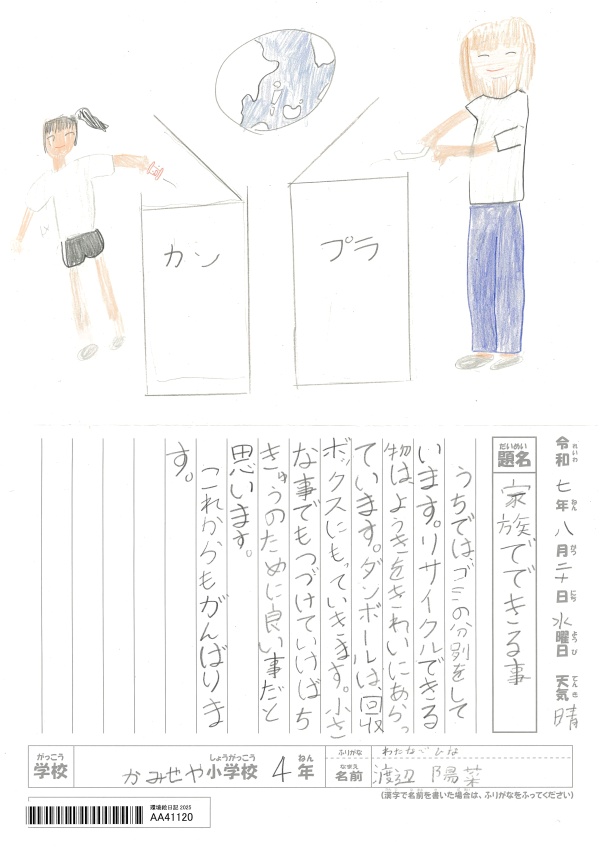 カン
プラ
令和七年八月二十日水曜日 天気 晴
れいわ ねん がつ にち ようび てんき
題名 家族でできる事
だいめい
うちでは、ゴミの分別をして
います。リサイクルできる
物は、ようきをきれいにあらっ
ています。ダンボールは、回収
ボックスにもっていきます。小さ
な事でもつづけていけばち
きゅうのために良い事だと
思います。
これからもがんばりま
す。
がっこう しょうがっこう ねん ふりがな わたなべ ひな
学校 かみせや小学校 4年 なまえ 名前 渡辺 陽菜
(漢字で名前を書いた場合は、ふりがなをふってください)
環境絵日記 2025
AA41120